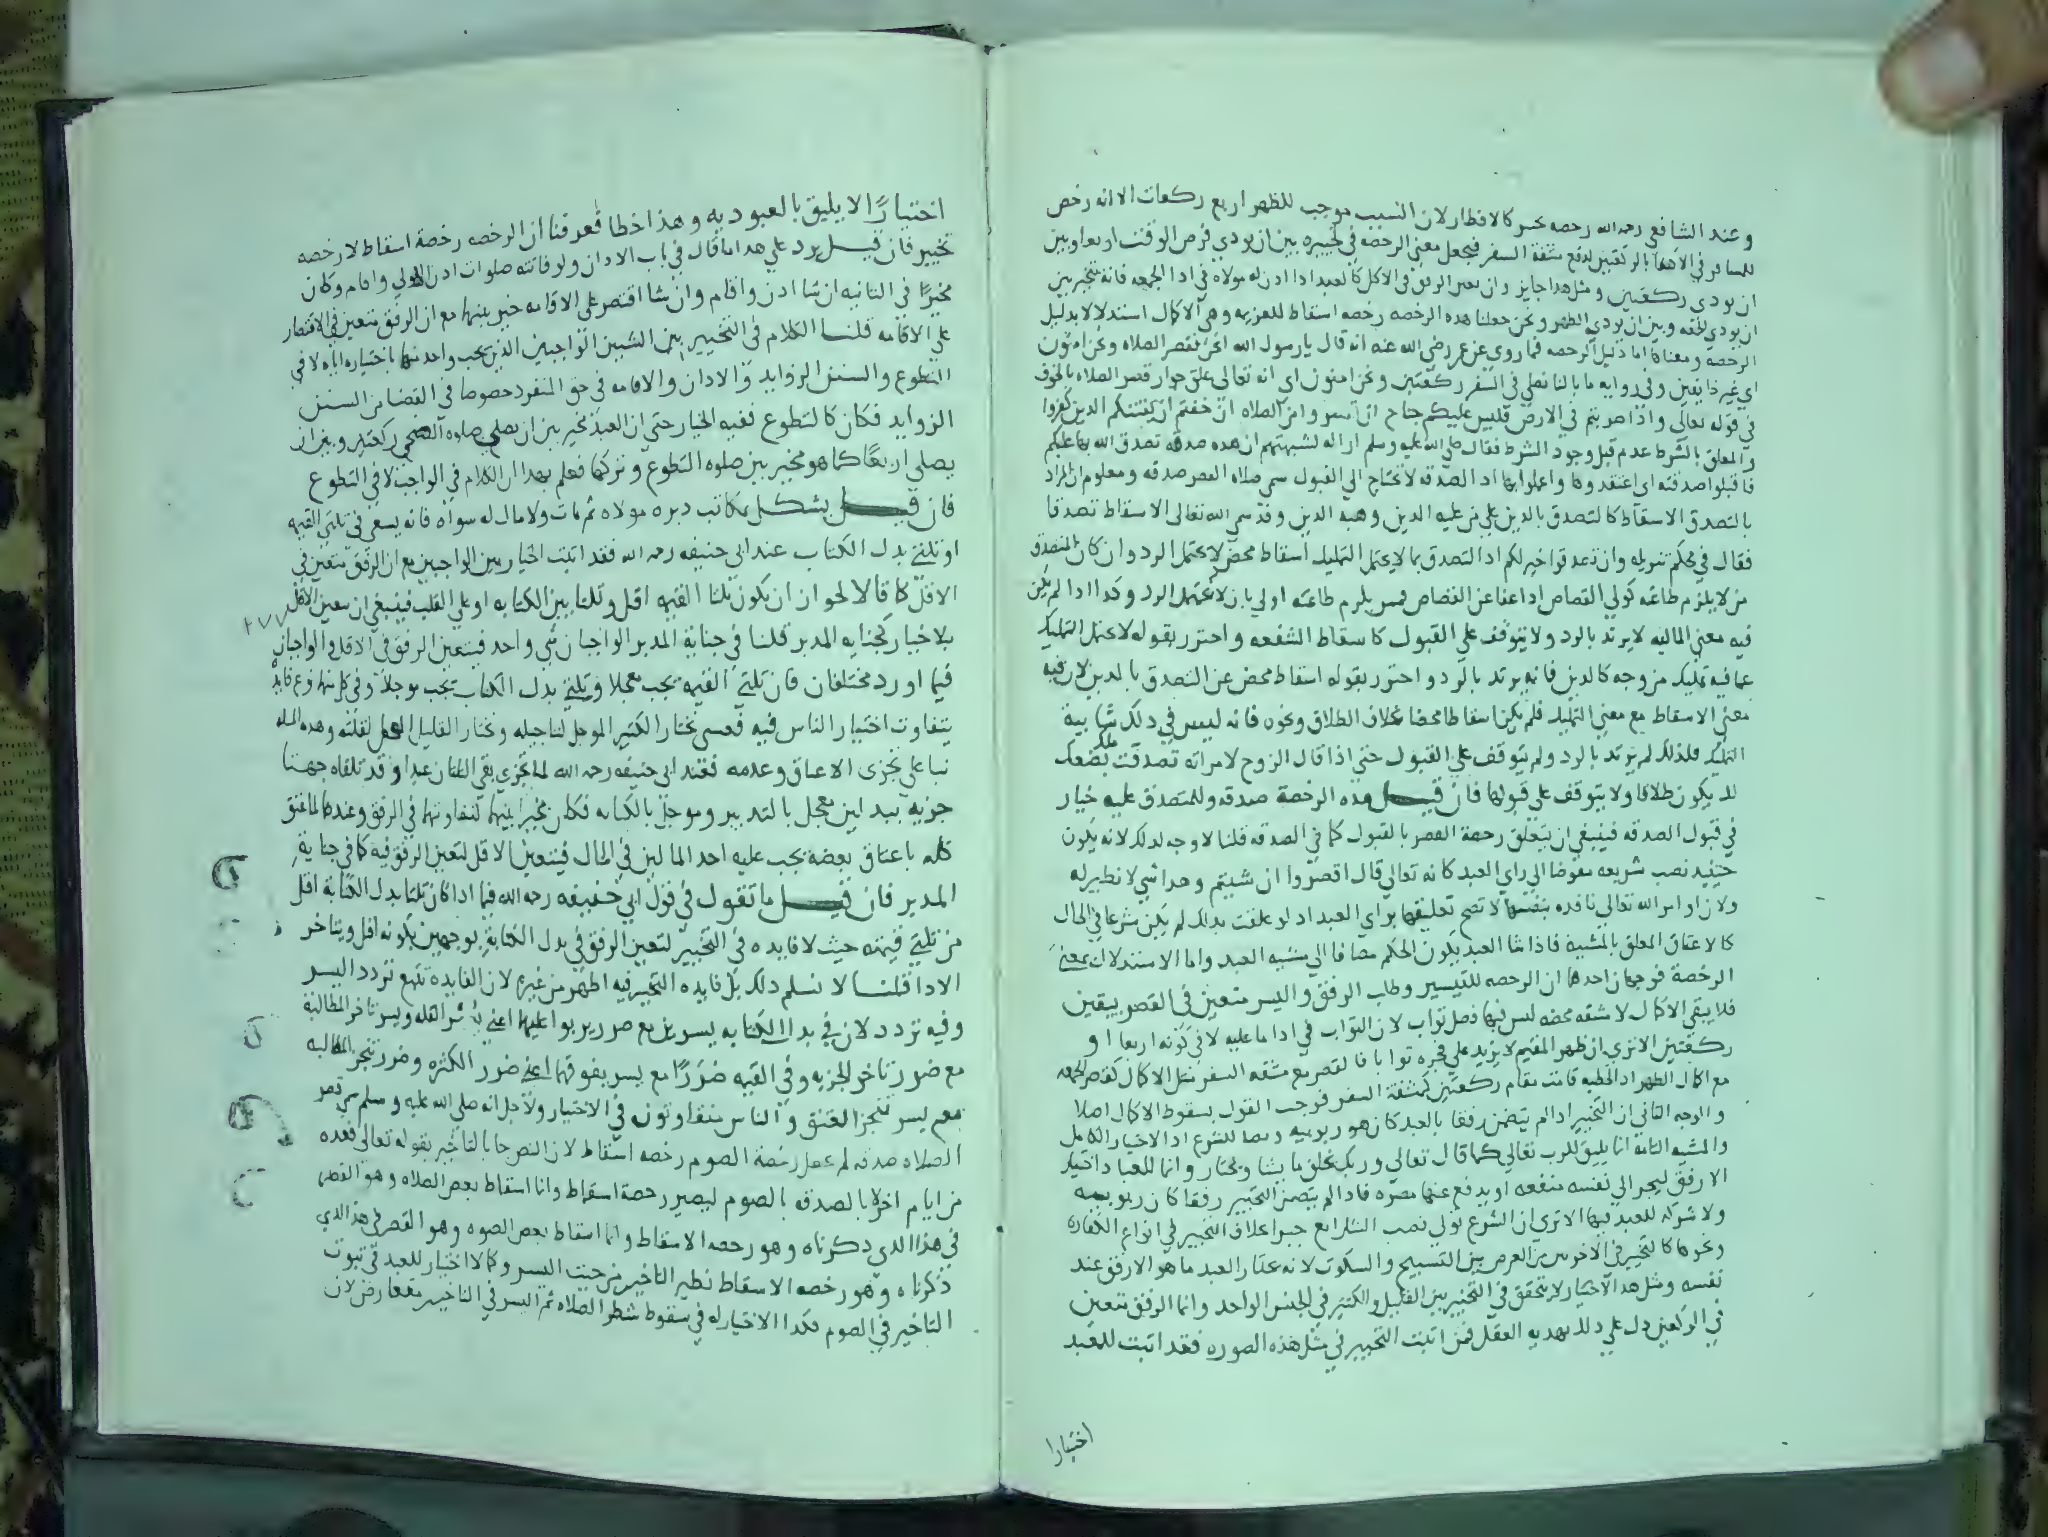 وعند الشافعي رحمه الله رخصه كالافطار لان السبب موجب للظهر اربع ركعات الا انه رخص
للمسافر في الاداء بالركعتين لدفع مشقة السفر فيجعل معنى الرخصه في تخييره بين ان يودي فرض الوقت اربعا وبين
ان يودي ركعتين ومثل هذا جايز وان تعين الرفق في الاكل كالعبد اذا اذن له مولاه في ادا الجمعه فانه يتخير بين
ان يودي الجمعه وبين ان يودي الظهر ونحن جعلنا هذه الرخصه رخصه اسقاط للعزيمه وهي الاكمال استدلالا بدليل
الرخصه ومعناها اما دليل الرخصه فما روي عن عمر رضي الله عنه انه قال يا رسول الله انحن نقصر الصلاه ونحن امنون
اي غير خايفين وفي روايه ما بالنا نصلي في السفر ركعتين ونحن امنون اي انه تعالى علق جواز قصر الصلاه بالخوف
في قوله تعالى واذا ضربتم في الارض فليس عليكم جناح ان تقصروا من الصلاه ان خفتم ان يفتنكم الذين كفروا
والمعلق بالشرط عدم قبل وجود الشرط فقال صلى الله عليه وسلم ازاله لشبهتهم ان هذه صدقه تصدق الله بها عليكم
فاقبلوا صدقته اي اعتقدوها واعملوا بها اذ الصدقه لا تحتاج الى القبول سمى صلاه القصر صدقه ومعلوم ان المراد
بالتصدق الاسقاط كالتصدق بالدين على من عليه الدين وهبه الدين وقد سمى الله تعالى الاسقاط تصدقا
فقال في محكم تنزيله وان تصدقوا خير لكم اذ التصدق بما لا يحتمل التمليك اسقاط محض لا يحتمل الرد وان كان المتصدق
من لا يلزم طاعته كولي القصاص اذا عفا عن القصاص فممن يلزم طاعته اولى بان لا يحتمل الرد وكذا اذا لم يكن
فيه معنى الماليه لا يرتد بالرد ولا يتوقف على القبول كاسقاط الشفعه واحترز بقوله لا يحتمل التمليك
عما فيه تمليك من وجه كالدين فانه يرتد بالرد واحترز بقوله اسقاط محض عن التصدق بالدين لان فيه
معنى الاسقاط مع معنى التمليك فلم يكن اسقاطا محضا بخلاف الطلاق ونحوه فانه ليس في ذلك شايبة
التمليك فلذلك لم يرتد بالرد ولم يتوقف على القبول حتى اذا قال الزوج لامراته تصدقت بضعك عليك
يكون طلاقا ولا يتوقف على قبولها فان قيل هذه الرخصة صدقه وللمتصدق عليه خيار
في قبول الصدقه فينبغي ان يتعلق رخصة القصر بالقبول كما في الصدقه قلنا لا وجه لذلك لانه يكون
حينيذ نصب شريعه مفوضا الى راي العبد كانه تعالى قال اقصروا ان شيتم وهذا شي لا نظير له
ولان اوامر الله تعالى نافذه بنفسها لا تصح تعليقها براي العباد اذ لو علقت بذلك لم يكن شرعا في الحال
كالاعتاق المعلق بالمشية فاذا شا العبد يكون الحكم مضافا الى مشيه العبد واما الاستدلال بمعنى
الرخصة فوجهان احدهما ان الرخصه للتيسير وطلب الرفق واليسر متعين في القصر بيقين
فلا يبقى الاكمال الا مشقه محضه ليس فيها فضل ثواب لان الثواب في ادا ما عليه لا في كونه اربعا او
ركعتين الا ترى ان ظهر المقيم لا يزيد على فجره ثوابا فالقصر مع مشقه السفر مثل الاكمال كقصر الجمعه
مع اكمال الظهر اذ الخطبه قامت مقام ركعتين كمشقة السفر فوجب القول بسقوط الاكمال اصلا
والوجه الثاني ان التخيير اذا لم يتضمن رفقا بالعبد كان هو ربوبيه ونصبا للشرع اذ الاختيار الكامل
والمشيه التامه انما يليق للرب تعالى كما قال تعالى وربك يخلق ما يشا ويختار وانما للعباد اختيار
الارفق ليجر الى نفسه منفعه او يدفع عنها مضره فاذا لم يتضمن التخيير رفقا كان ربوبيه
ولا شركه للعبد فيها الا ترى ان الشرع تولى نصب الشرايع جبرا بخلاف التخيير في انواع الكفاره
ونحوها كالتخيير في الاخريين من الفرض بين التسبيح والسكوت لانه يختار العبد ما هو الارفق عند
نفسه ومثل هذا الاختيار لا يتحقق في التخيير بين القليل والكثير في الجنس الواحد وانما الرفق متعين
في الركعتين دل على ذلك بديهة العقل فمن اثبت التخيير في مثل هذه الصوره فقد اثبت للعبد
اختيارا
اختيارًا لا يليق بالعبوديه وهذا خطا فعرفنا ان الرخصه رخصة اسقاط لا رخصه
تخيير فان قيل يرد على هذا ما قال في باب الاذان ولو فاتته صلوات اذن للاولى واقام وكان
مخيرًا في الثانيه ان شا اذن واقام وان شا اقتصر على الاقامه خير بينهما مع ان الرفق متعين في الاقتصار
على الاقامه قلنا الكلام في التخيير بين الشيين الواجبين الذين يجب واحد منهما باختياره اياه لا في
التطوع والسنن الزوايد والاذان والاقامه في حق المنفرد خصوصا في القضا من السنن
الزوايد فكان كالتطوع ففيه الخيار حتى ان العبد مخير بين ان يصلي صلوه الضحى ركعتين وبين ان
يصلي اربعًا كما هو مخير بين صلوه التطوع وتركها فعلم بهذا ان الكلام في الواجب لا في التطوع
فان قيل يشكل بمكاتب دبره مولاه ثم مات ولا مال له سواه فانه يسعى في ثلثي القيمه
او ثلثي بدل الكتاب عند ابي حنيفه رحمه الله فقد اثبت الخيار بين الواجبين مع ان الرفق متعين في
الاقل كما قالا لجواز ان يكون ثلثا القيمه اقل وثلثا بدل الكتابه او على القلب فينبغي ان يتعين الاقل
بلا خيار كجنايه المدبر قلنا في جناية المدبر الواجبان شي واحد فيتعين الرفق في الاقل والواجبان
فيما اورد مختلفان فان ثلثي القيمه يجب معجلا وثلثي بدل الكتاب يجب موجلا وفي كل منهما نوع فايدة
يتفاوت اختيار الناس فيه فعسى يختار الكثير الموجل لتاجيله ويختار القليل المعجل لقلته وهذه المسله
بنا على تجزى الاعتاق وعدمه فعند ابي حنيفه رحمه الله لما تجزى بقي الثلثان عبدا وقد تلقاه جهتا
حريه ببدلين معجل بالتدبير وموجل بالكتابه فكان مخيرا بينهما لتفاوتهما في الرفق وعندهما لما عتق
كله باعتاق بعضه يجب عليه احد المالين في الحال فيتعين الاقل لتعين الرفق فيه كما في جناية
المدبر فان قيل ما تقول في قول ابي حنيفه رحمه الله فيما اذا كان ثلثا بدل الكتابة اقل
من ثلثي قيمته حيث لا فايده في التخيير لتعين الرفق في بدل الكتابة بوجهين بكونه اقل ويتاخر
الادا قلنا لا نسلم ذلك بل فايده التخيير فيه اظهر من غيره لان الفايدة تتبع تردد اليسر
وفيه تردد لان في بدل الكتابه يسرين مع ضرر يربو عليهما اعني يسر القله ويسر تاخر المطالبة
مع ضرر تاخر الحريه وفي القيمه ضررًا مع يسر يفوقهما اعني ضرر الكثره وضرر تنجز المطالبه
مع يسر تنجز العتق والناس متفاوتون في الاختيار ولاجل انه صلى الله عليه وسلم سمى قصر
الصلاه صدقه لم نجعل رخصة الصوم رخصه اسقاط لان النص جا بالتاخير بقوله تعالى فعده
من ايام اخر لا بالصدقه بالصوم ليصير رخصة اسقاط وانما اسقاط بعض الصلاه وهو القصر
في هذا الذي ذكرناه وهو رخصه الاسقاط وانما اسقاط بعض الصوه وهو القصر في هذا الذي
ذكرناه وهو رخصه الاسقاط نظير التاخير من حيث اليسر وكما لا اختيار للعبد في ثبوت
التاخير في الصوم فكذا لا اختيار له في سقوط شطر الصلاه ثم اليسر في التاخير متعارض لان
٢٧٧